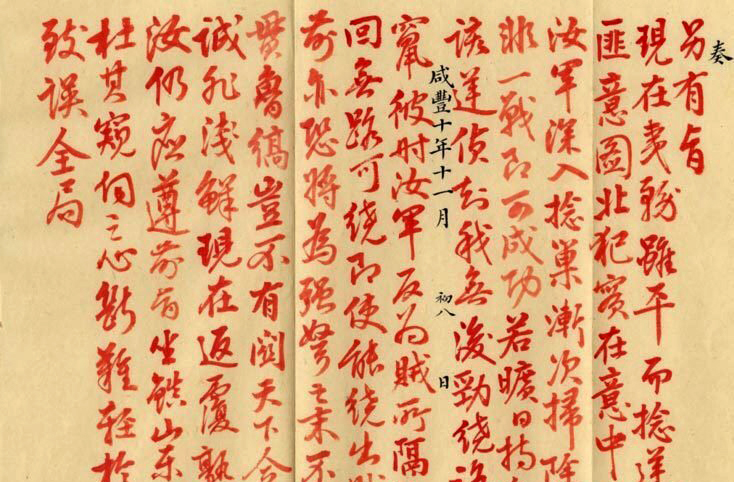 奏
另有旨
現在夷務雖平而捻
匪意圖北犯實在意中
汝軍深入捻巢漸次掃除
非一戰即可成功若曠日持
該逆偵知我無後勁繞
咸豐十年十一月 初八 日
竄彼時汝軍反為賊所隔
回無路可繞即使能繞出
前亦恐將為强弩之末不
貫魯縞豈不有關天下全
誠非淺鮮現在返覆
汝仍應遵前旨坐鎮山東
杜其窺伺之心斷難輕於
致誤全局